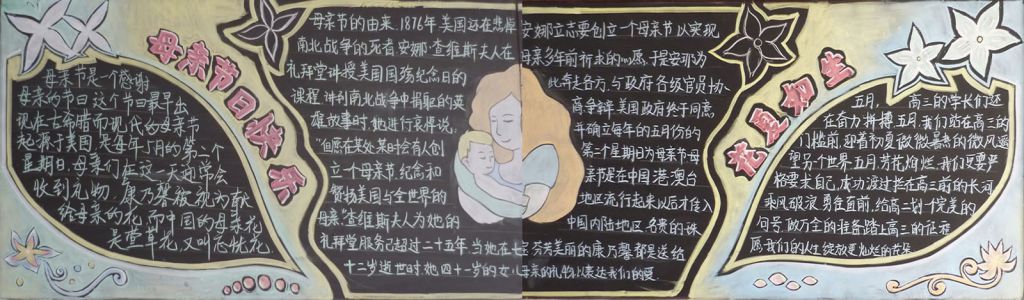 母亲节日快乐
母亲节是个感谢
母亲的节日这个节日最早出
现在古希腊而现代的母亲节
起源于美国是每年5月的第二个
星期日,母亲们在这一天通常会
收到礼物,康乃馨被视为献
给母亲的花,而中国的母亲花
是萱草花,又叫忘忧花
母亲节的由来1876年,美国还在悲悼
南北战争的死者,安娜·查维斯夫人在
礼拜堂讲授美国国殇纪念日的
课程,讲到南北战争中捐躯的英
雄故事时,她进行哀悼说:
“但愿在某处某时会有人创
立个母亲节,纪念和
赞扬美国与全世界的
母亲”查维斯夫人为她的
礼拜堂服务已超过二十五年,当她在七
十二岁逝世时,她四十一岁的女儿
安娜立志要创立一个母亲节以实现
母亲多年前祈求的心愿,于是安娜为
此奔走各方,与政府各级官员协
商争辩,美国政府终于同意
并确立每年的五月份的
第二个星期日为母亲节母
亲节是在中国港澳台
地区流行起来以后才进入
中国内陆地区,名贵的珠
宝,芬芳美丽的康乃馨都是送给
母亲的礼物以表达我们的爱
花夏初生
五月,高三的学长们还
在奋力拼搏,五月,我们站在高三的
门槛前,迎着初夏微微暑热的微风遥
望另个世界,五月芳花绚烂,我们要严
格要求自己,成功渡过拦在高三前的长河
乘风破浪,勇往直前,给高二划个完美的
句号,做万全的准备踏上高三的征程
愿我们的人生绽放更灿烂的花朵